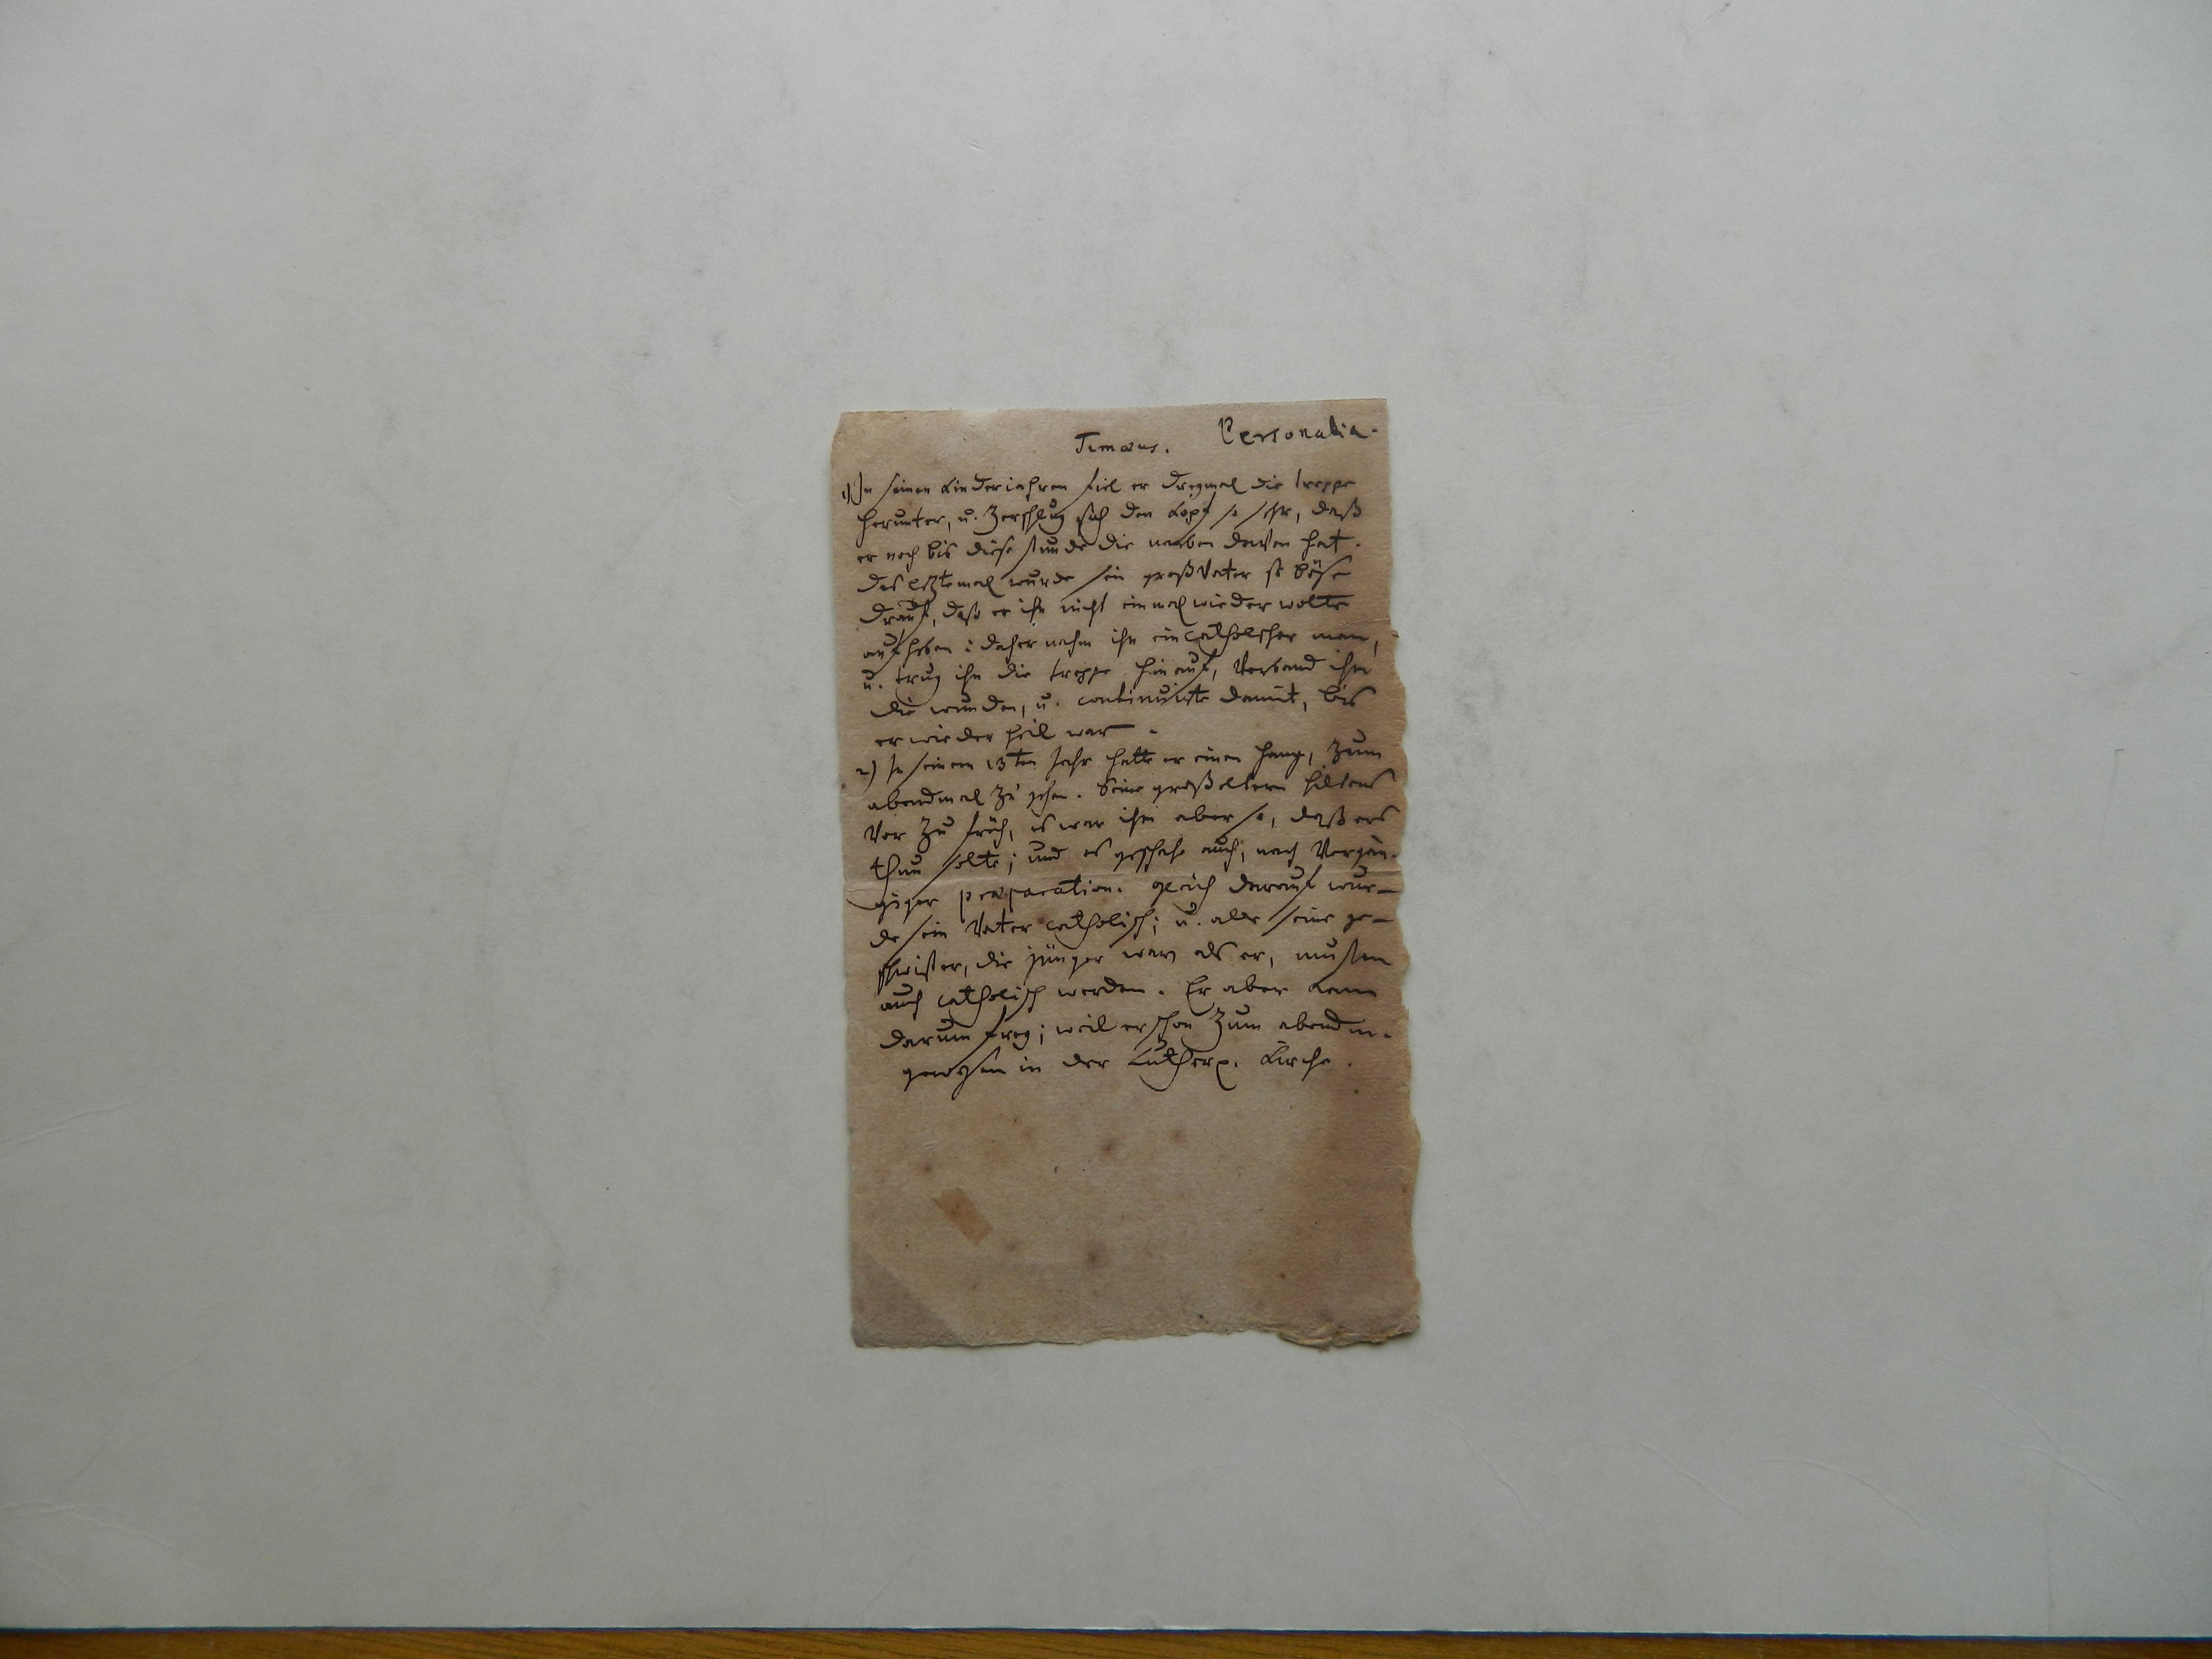 Timæus. Personalia.
1) In seinen Kinderjahren fiel er dreymal die treppe
herunter, u. zerschlug sich den Kopf so sehr, daß
er noch bis diese stunde die narben davon hat.
das letztemal wurde sein großvater so böse
drauf, daß er ihn nicht einmal wieder wolte
aufheben: daher nahm ihn ein catholscher man,
u. trug ihn die treppe hinauf, verband ihm
die wunden, u. continuirte damit, bis
er wieder heil war.
2) In seinem 13ten Jahr hatte er einen hang, zum
abendmal zu gehen. Seine großeltern hieltens
vor zu früh, es war ihm aber so, daß ers
thun solte; und es geschahe auch, nach vorgän-
giger præparation. gleich darauf wur-
de sein Vater catholisch; u. alle seine ge-
schwister, die jünger warn als er, musten
auch catholisch werden. Er aber kam
darum frey; weil er schon zum abendm.
gewesen in der Luther. Kirche.